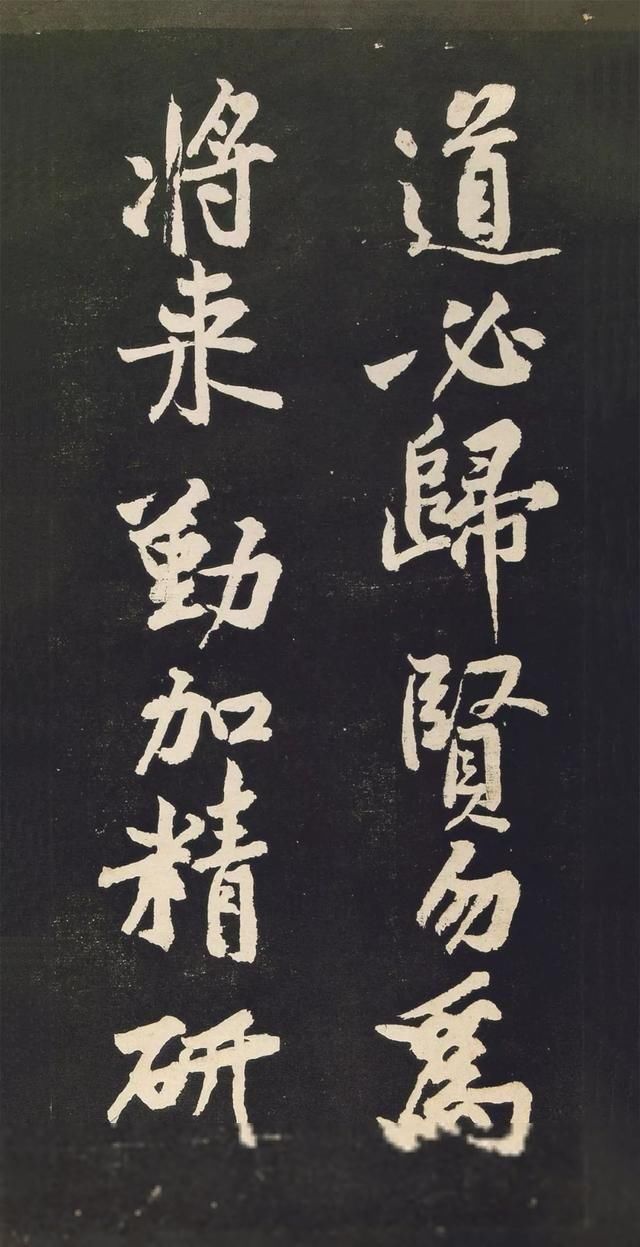 道必歸賢勿爲
将来勤加精研